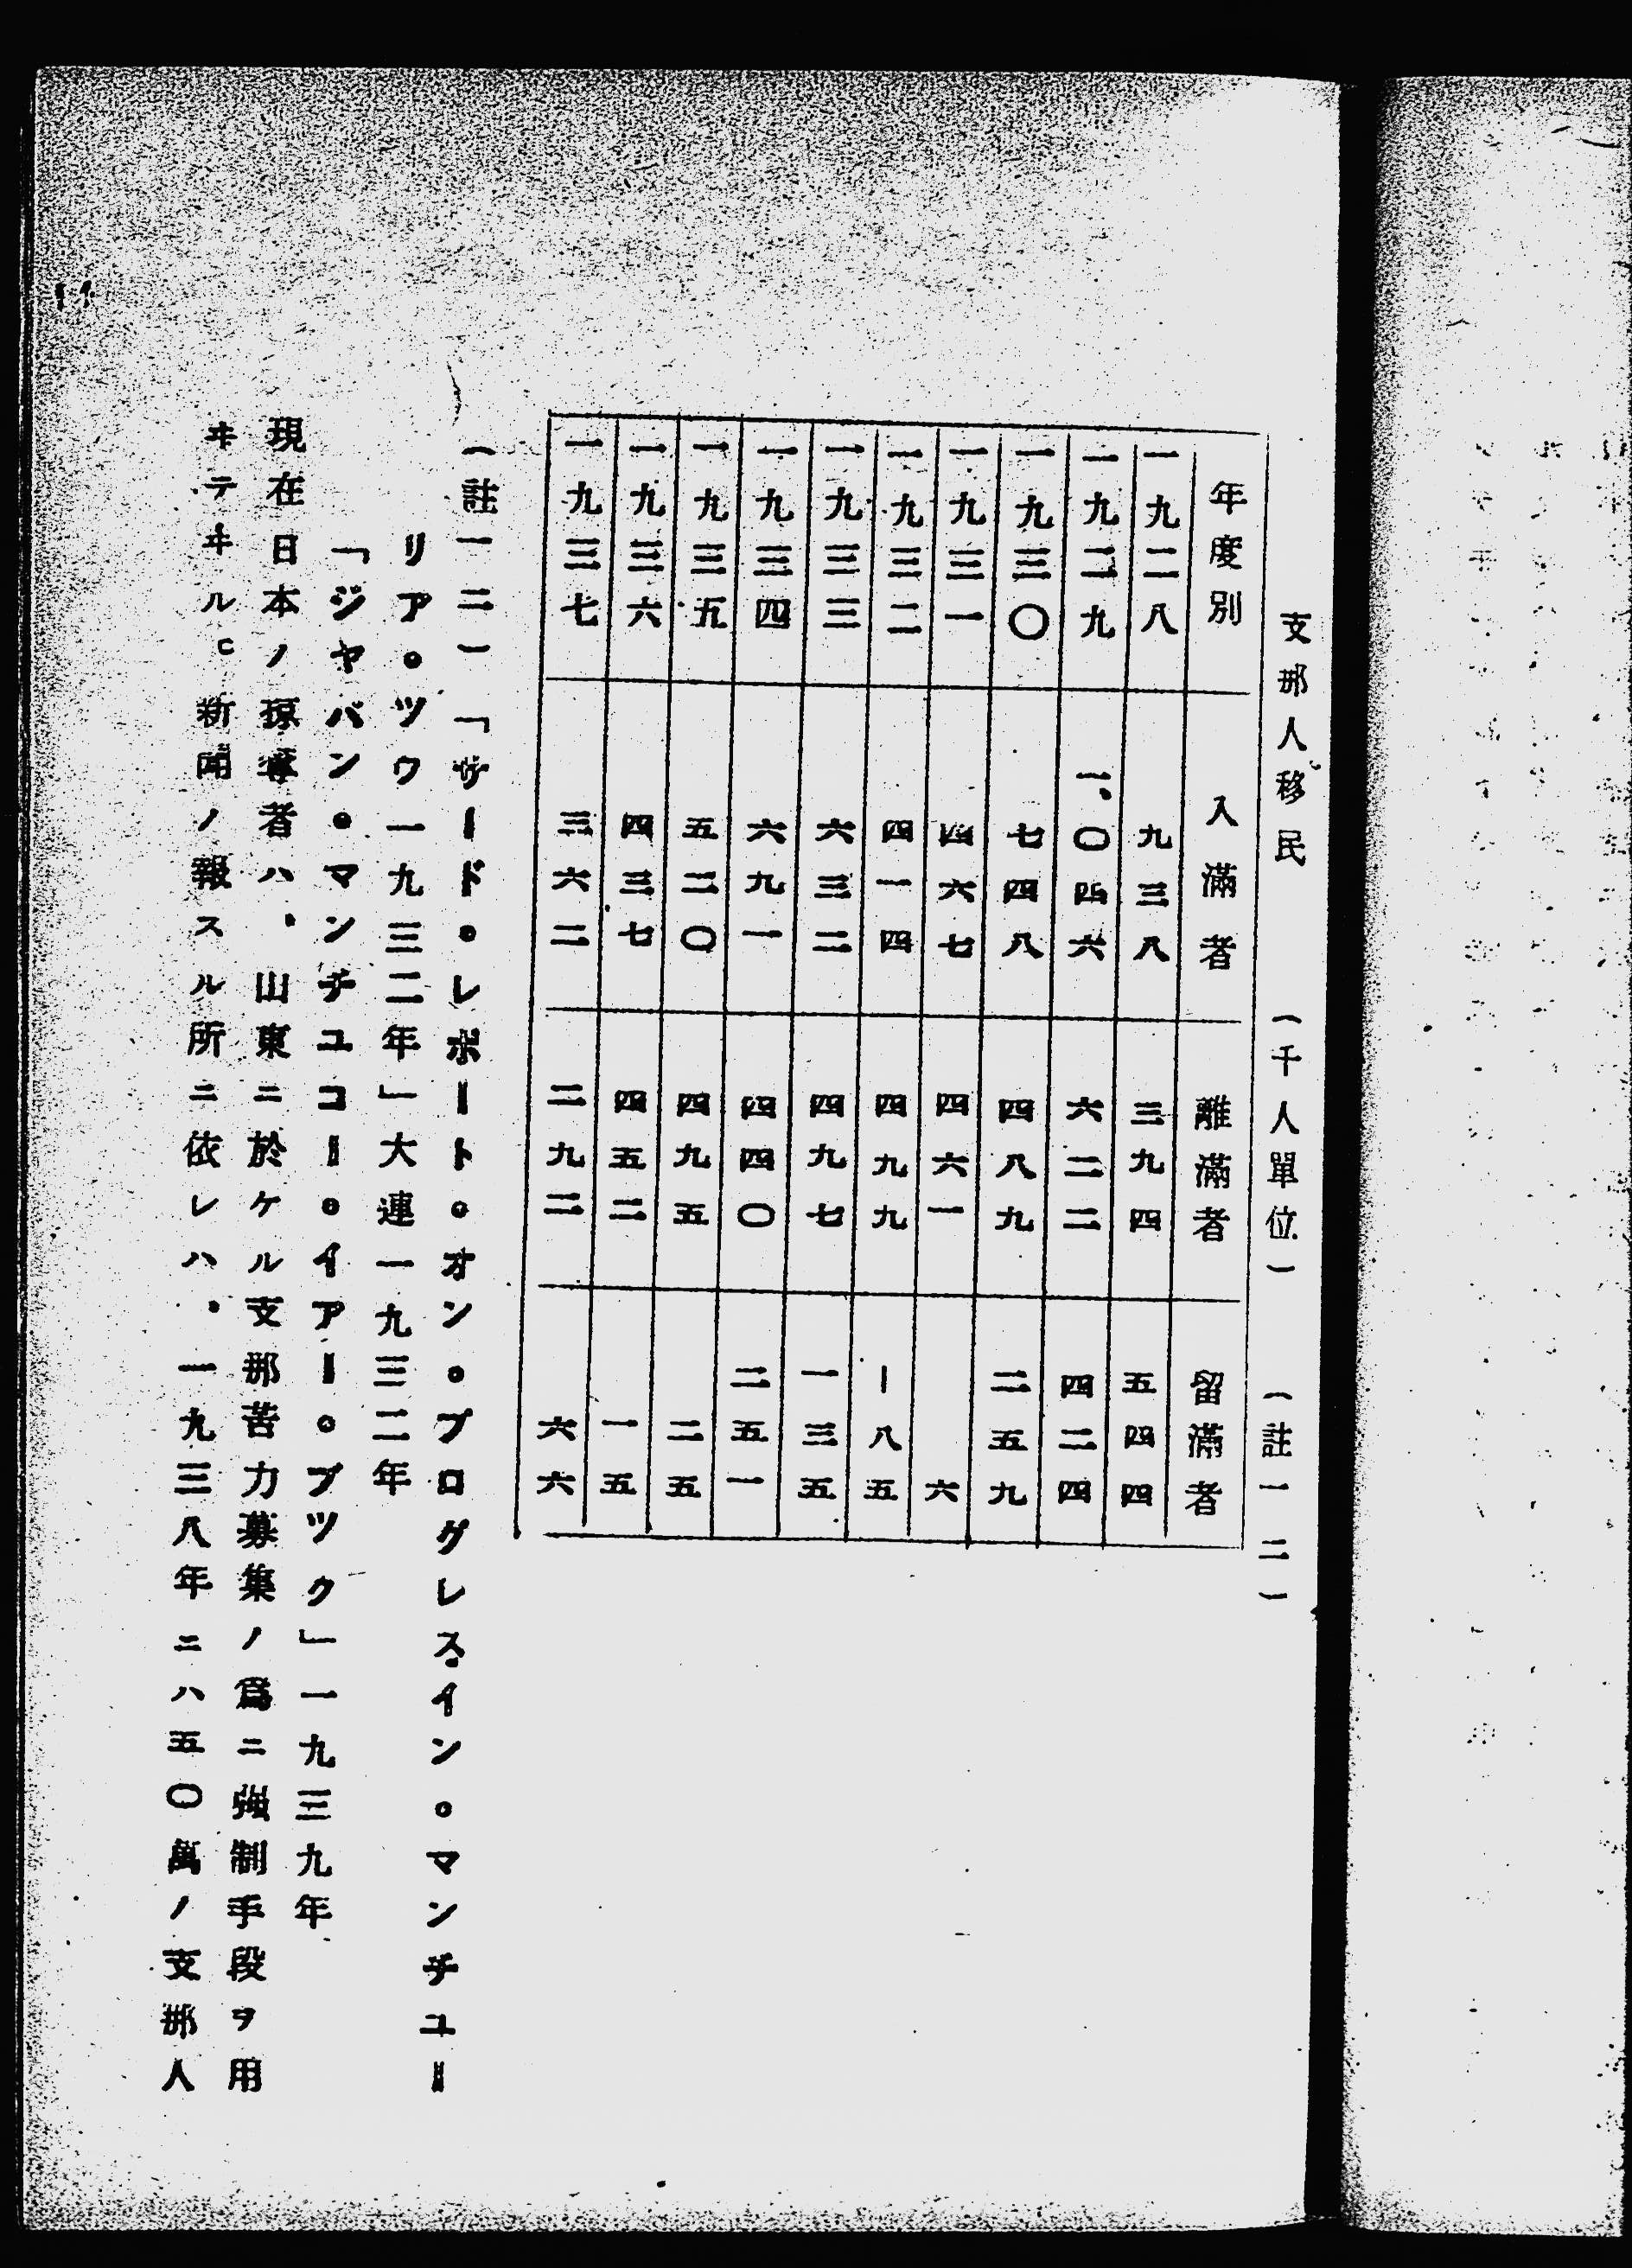 支那人移民　（千人單位）　（註一二）
年度別　入滿者　離滿者　留滿者
一九二八　九三八　三九四　五四四
一九二九　一、〇四六　六二二　四二四
一九三〇　七四八　四八九　二五九
一九三一　四六七　四六一　六
一九三二　四一四　四九九　ー八五
一九三三　六三二　四九七　一三五
一九三四　六九一　四四〇　二五一
一九三五　五二〇　四九五　二五
一九三六　四三七　四五二　一五
一九三七　三六二　二九二　六六
（註一二）「サード。レポート。オン。プログレスイン。マンチユー
リア。ツウ一九三二年」大連一九三二年
「ジヤパン。マンチユコー。イアー。ブツク」一九三九年
現在日本ノ掠奪者ハ、山東ニ於ケル支那苦力募集ノ爲ニ強制手段ヲ用
ヰテヰル。新聞ノ報スル所ニ依レハ、一九三八年ニハ五〇萬ノ支那人